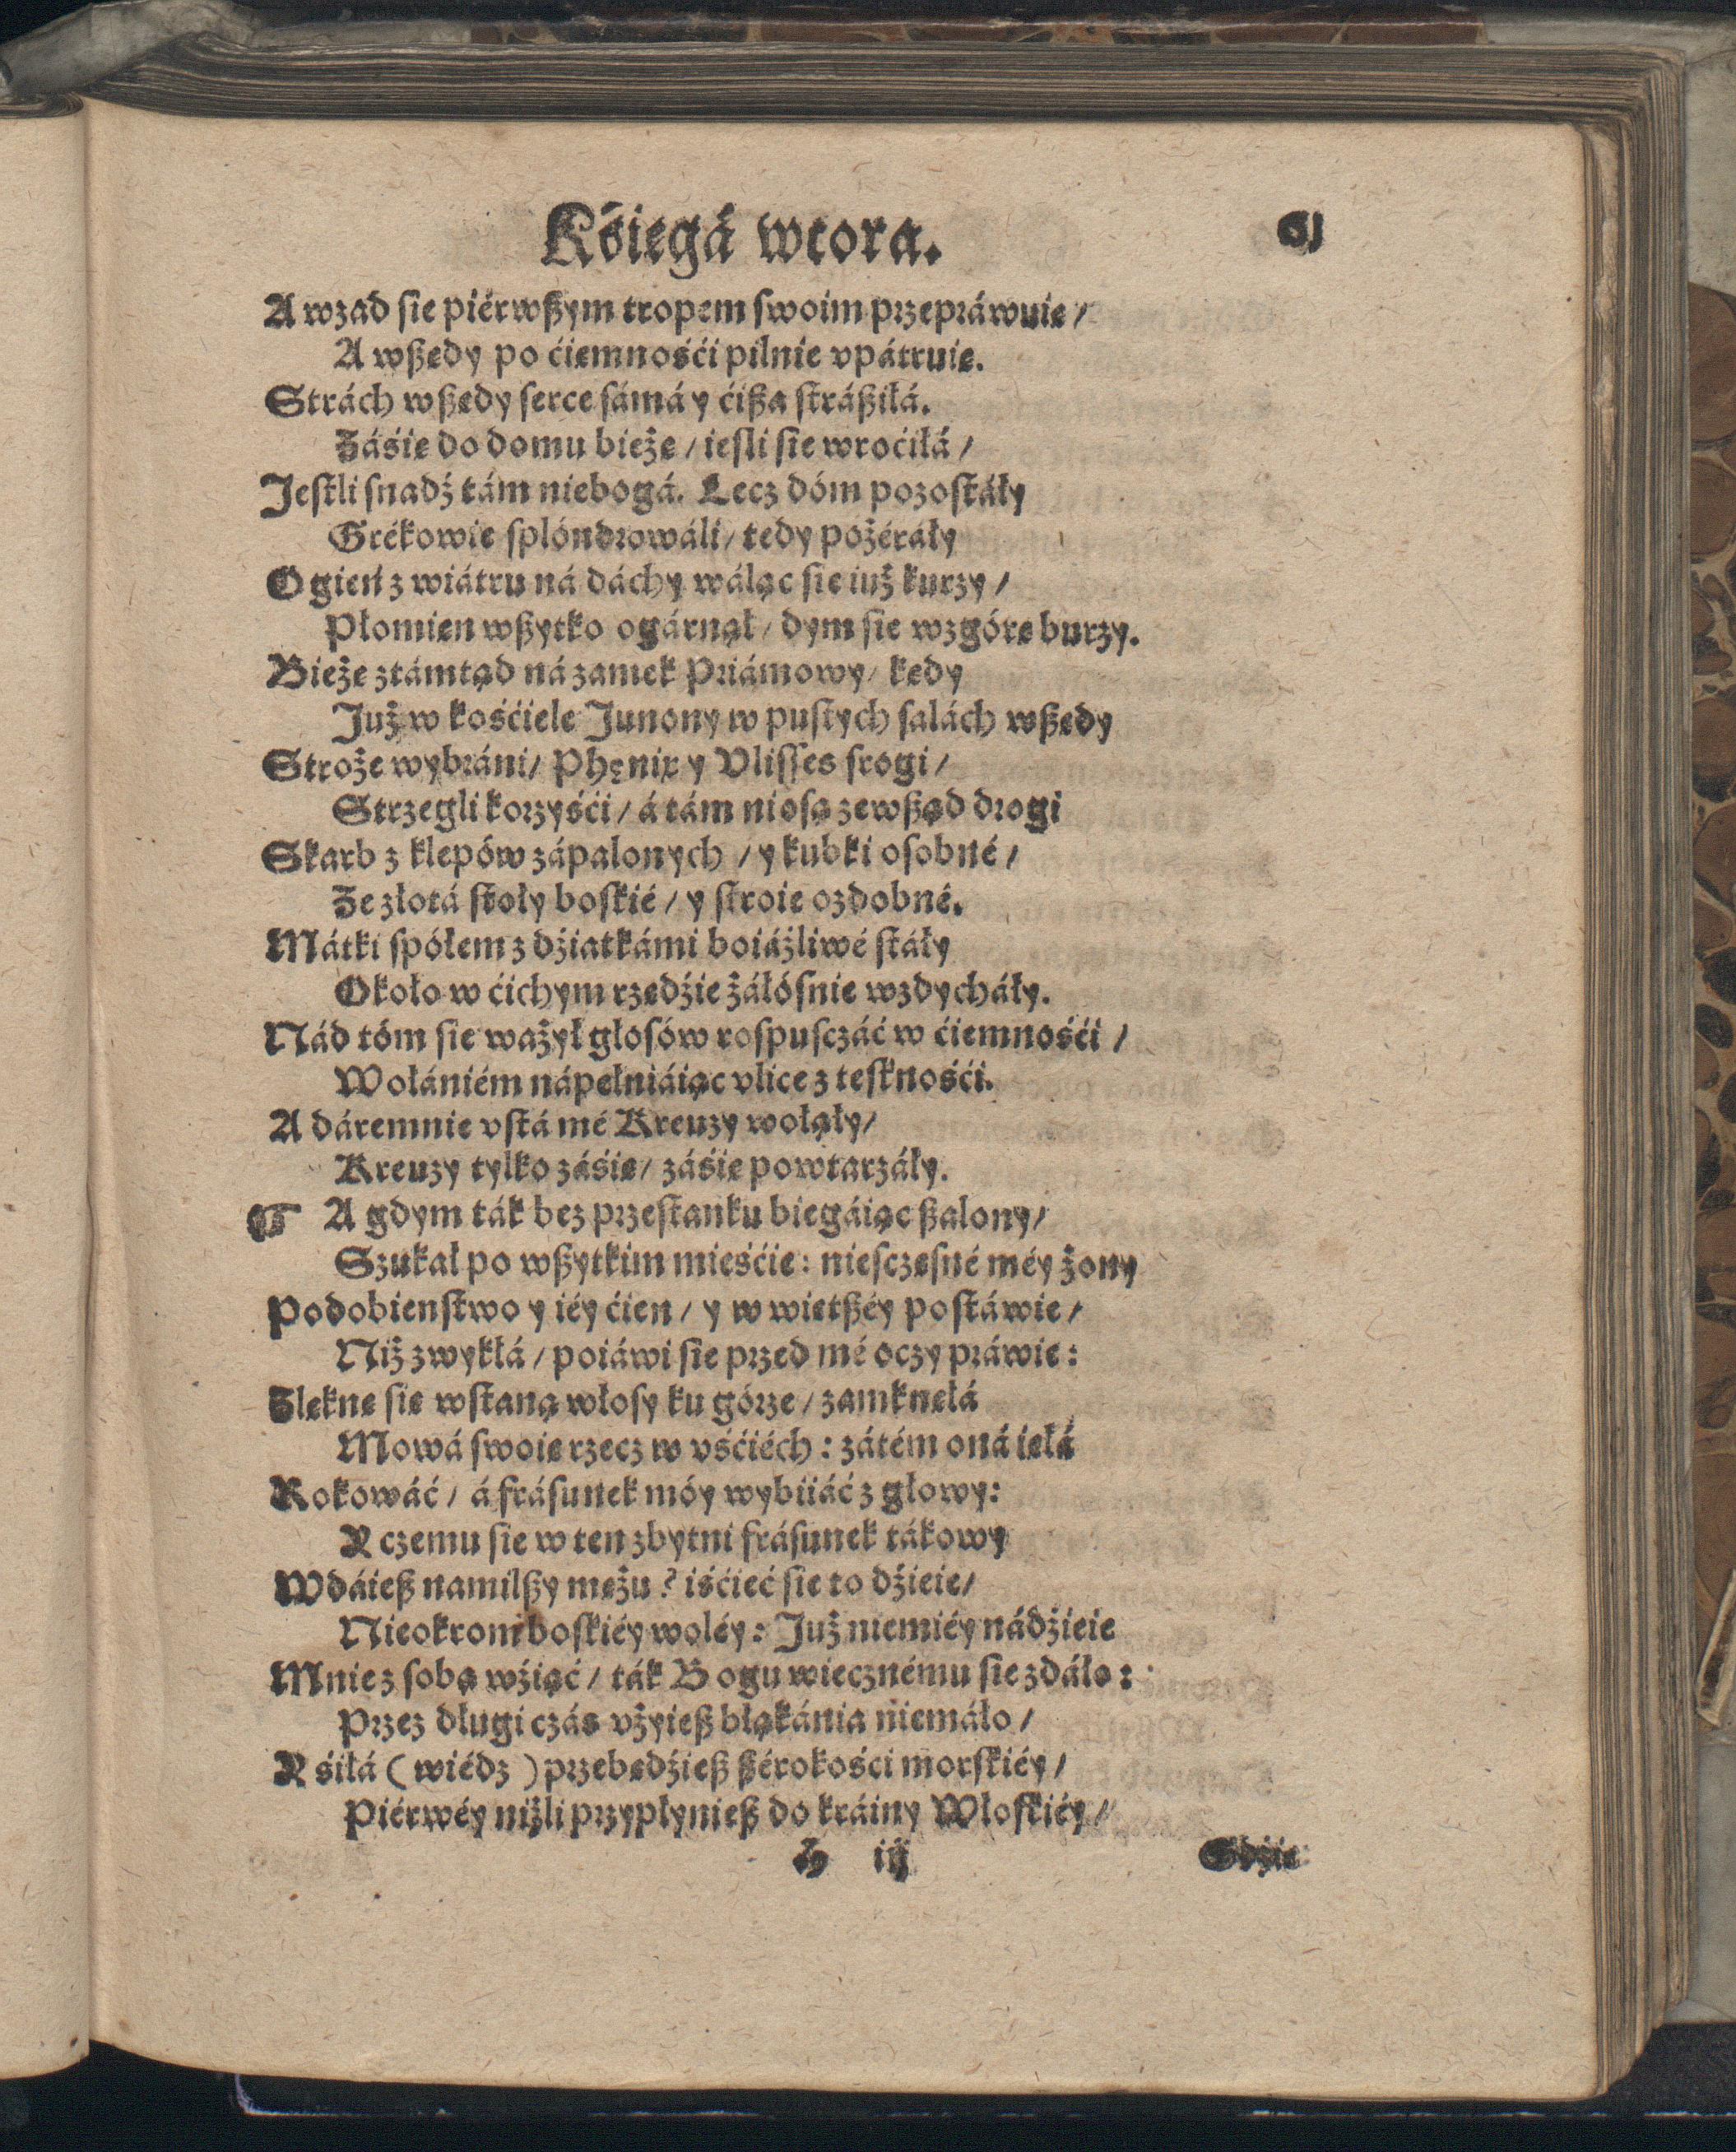 Kśięgá wtora. 61
A wzad sie piérwßym tropem swoim przepráwuie /
A wßędy po ćiemnośći pilnie vpátruie.
Strách wßędy serce sámá y ćißa stráßiłá.
Záśie do domu bieżę / iesli sie wroćiłá /
Jestli snadź tám niebogá. Lecz dóm pozostáły
Grékowie splóndrowáli / tedy pożéráły
Ogień z wiátru ná dáchy wáląc sie iuż kurzy /
Płomień wßytko ogárnął / dym sie wzgórę burzy.
Bieżę ztámtąd ná zamek Priámowy / kędy
Już w kośćiele Junony w pustych salách wßędy
Stroże wybráni / Phęnix y Vlisses srogi /
Strzegli korzyśći / á tám niosą zewßąd drogi
Skarb z klepów zápalonych / y kubki osobné /
Ze złotá stoły boskié / y stroie ozdobné.
Mátki spółem z dźiatkámi boiáźliwé stáły
Około w ćichym rzędźie żáłósnie wzdycháły.
Nád tóm sie ważył głosów rospusczáć w ćiemnośći /
Wołániém nápełniáiąc vlice z tesknośći.
A dáremnie vstá mé Kreuzy wołáły /
Kreuzy tylko záśię / záśię powtarzáły.
☞ A gdym ták bez przestanku biegáiąc ßalony /
Szukał po wßytkim mieśćie: niesczęsné méy żony
Podobieństwo y iéy ćień / y w więtßéy postáwie /
Niż zwykłá / poiáwi sie przed mé oczy práwie:
Zlęknę sie wstáną włosy ku górze / zamknęłá
Mowá swoię rzecz w vśćiéch: zátém oná ięłá
Rokowáć / á frásunek móy wybiiáć z głowy:
A czemu sie w ten zbytni frásunek tákowy
Wdáieß namilßy mężu? iśćieć sie to dźieie /
Nieokrom boskiéy woléy: Już niemiéy nádźieie
Mnie z sobą wźiąć / ták Bogu wiecznému sie zdáło:
Przez długi czás vżyieß błąkánia niemáło /
A śiłá (wiédz) przebędźieß ßérokości morskiéy /
Piérwéy niżli przypłynieß do kráiny Włoskiéy /
H iij Gdźie